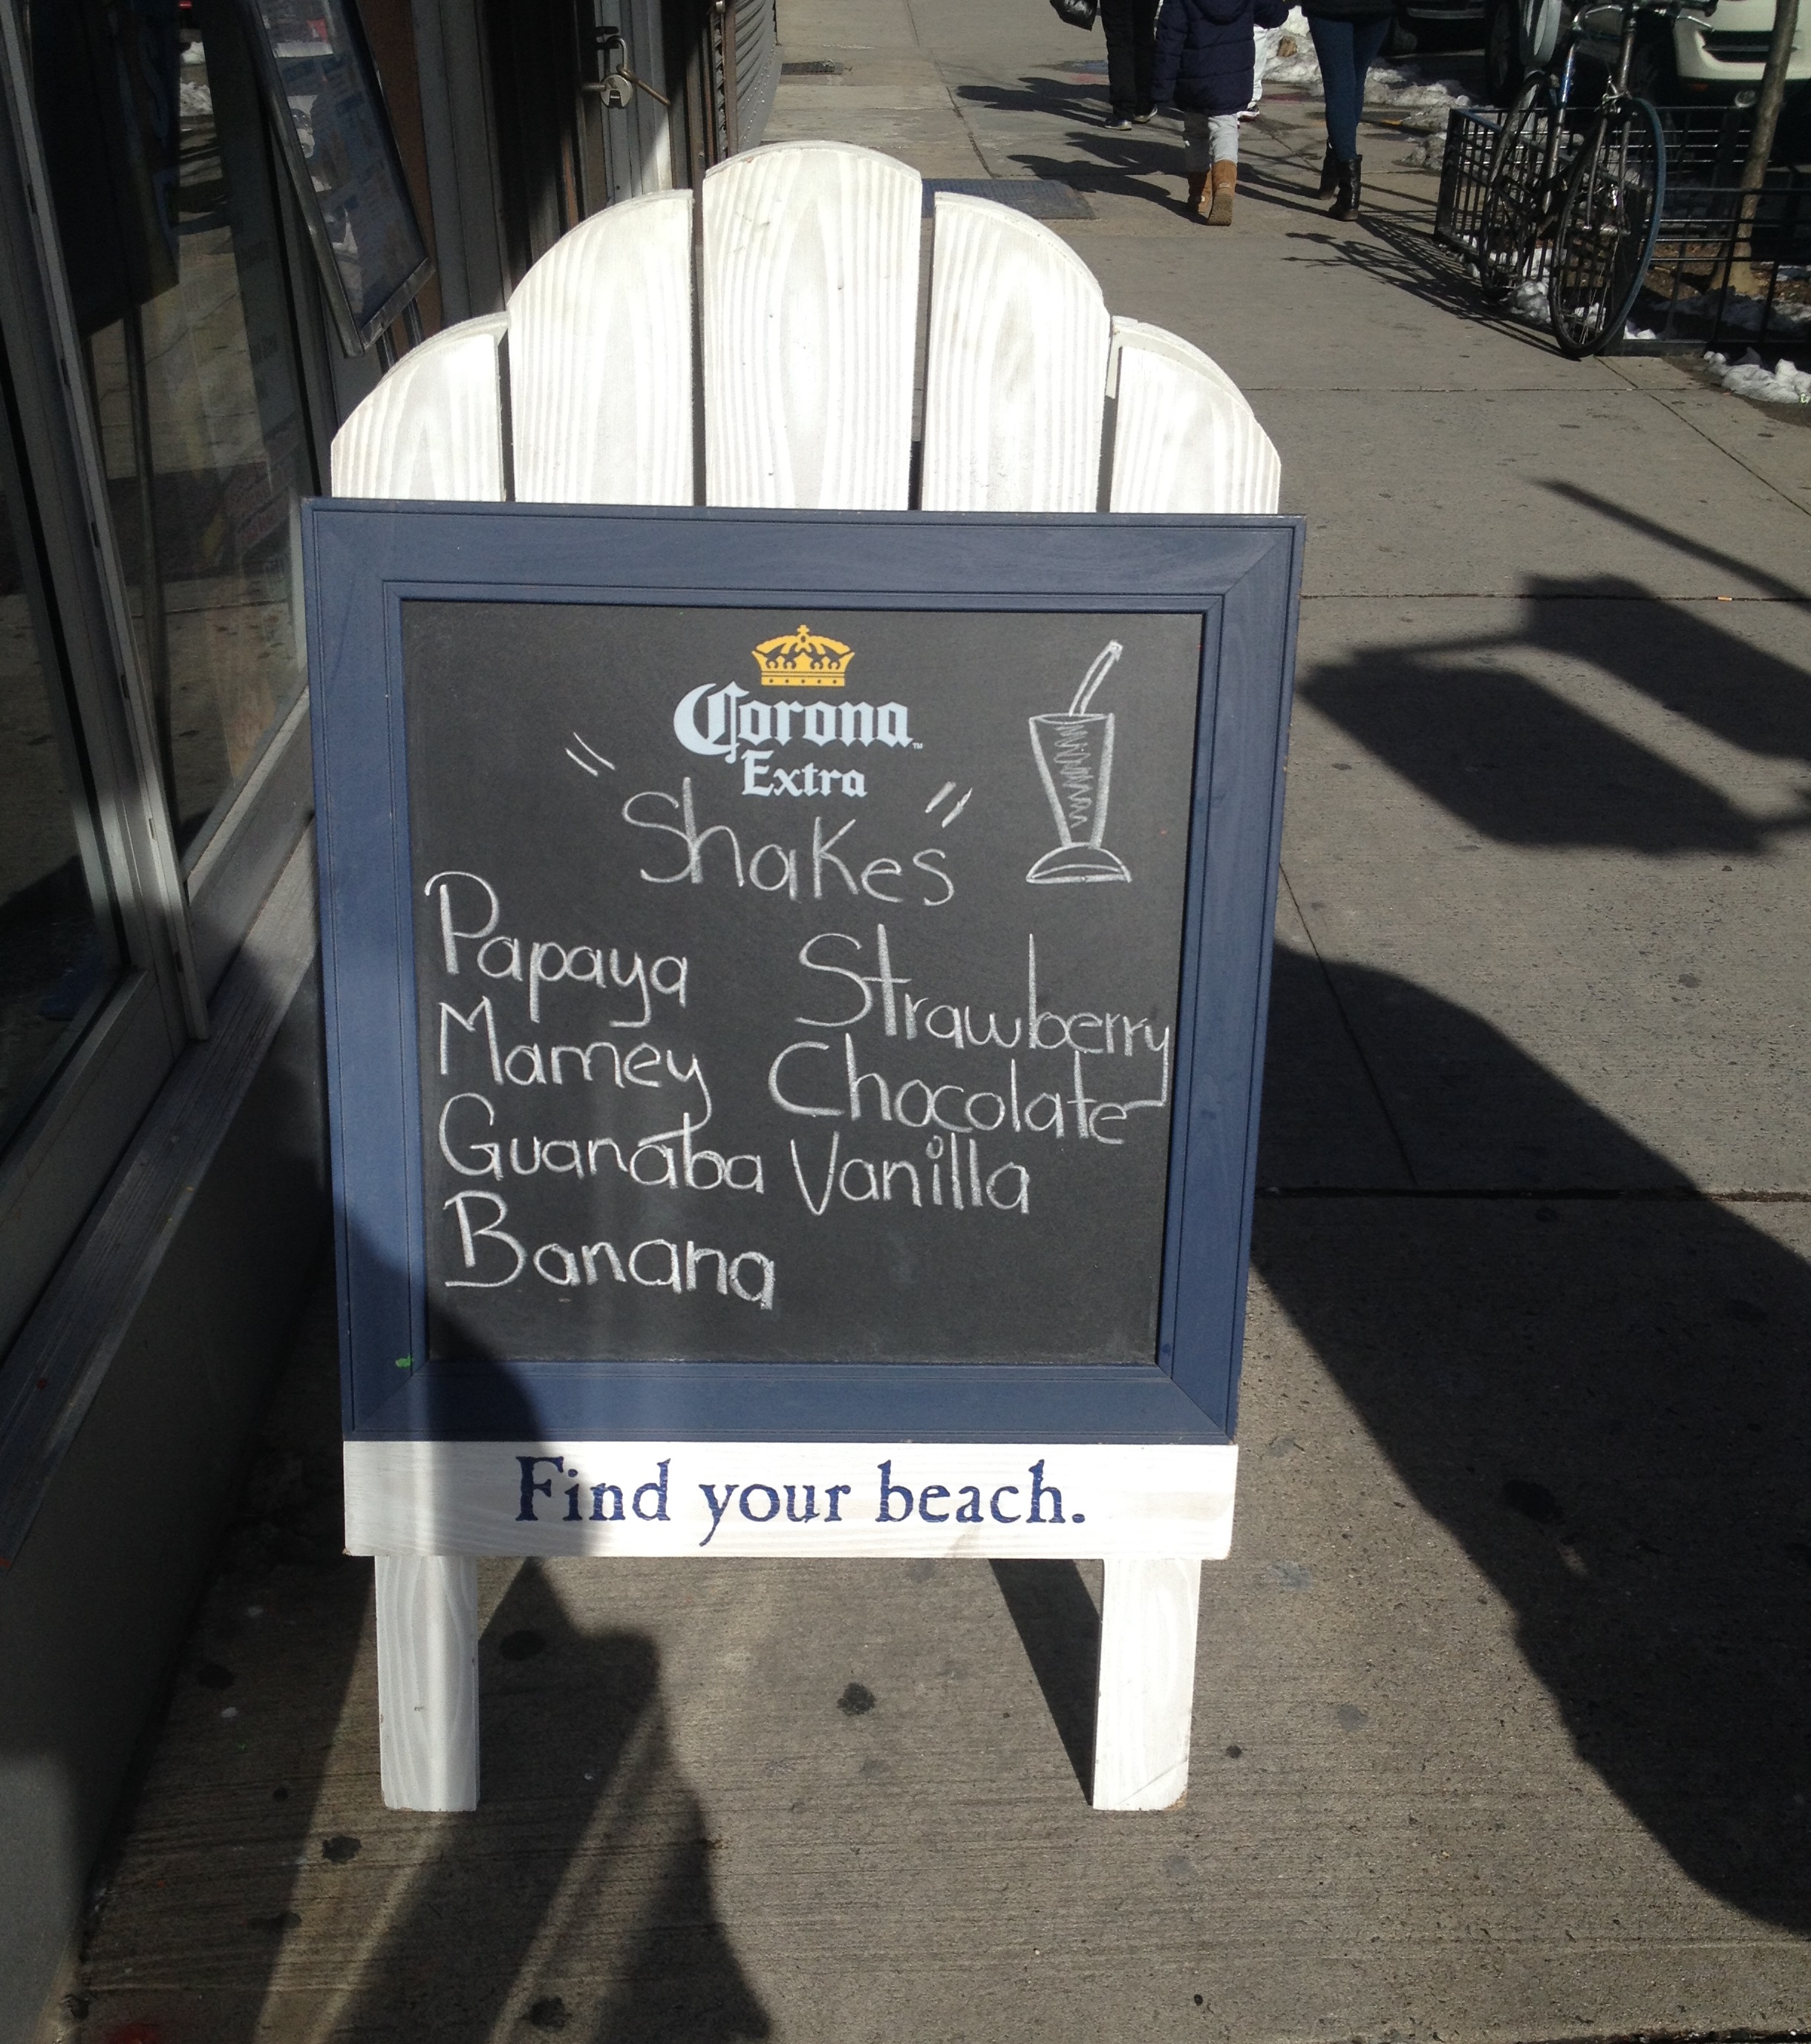 Corona
Extra
"Shakes"
Papaya
Mamey
Guanaba
Banana
Strawberry
Chocolate
Vanilla
Find your beach.